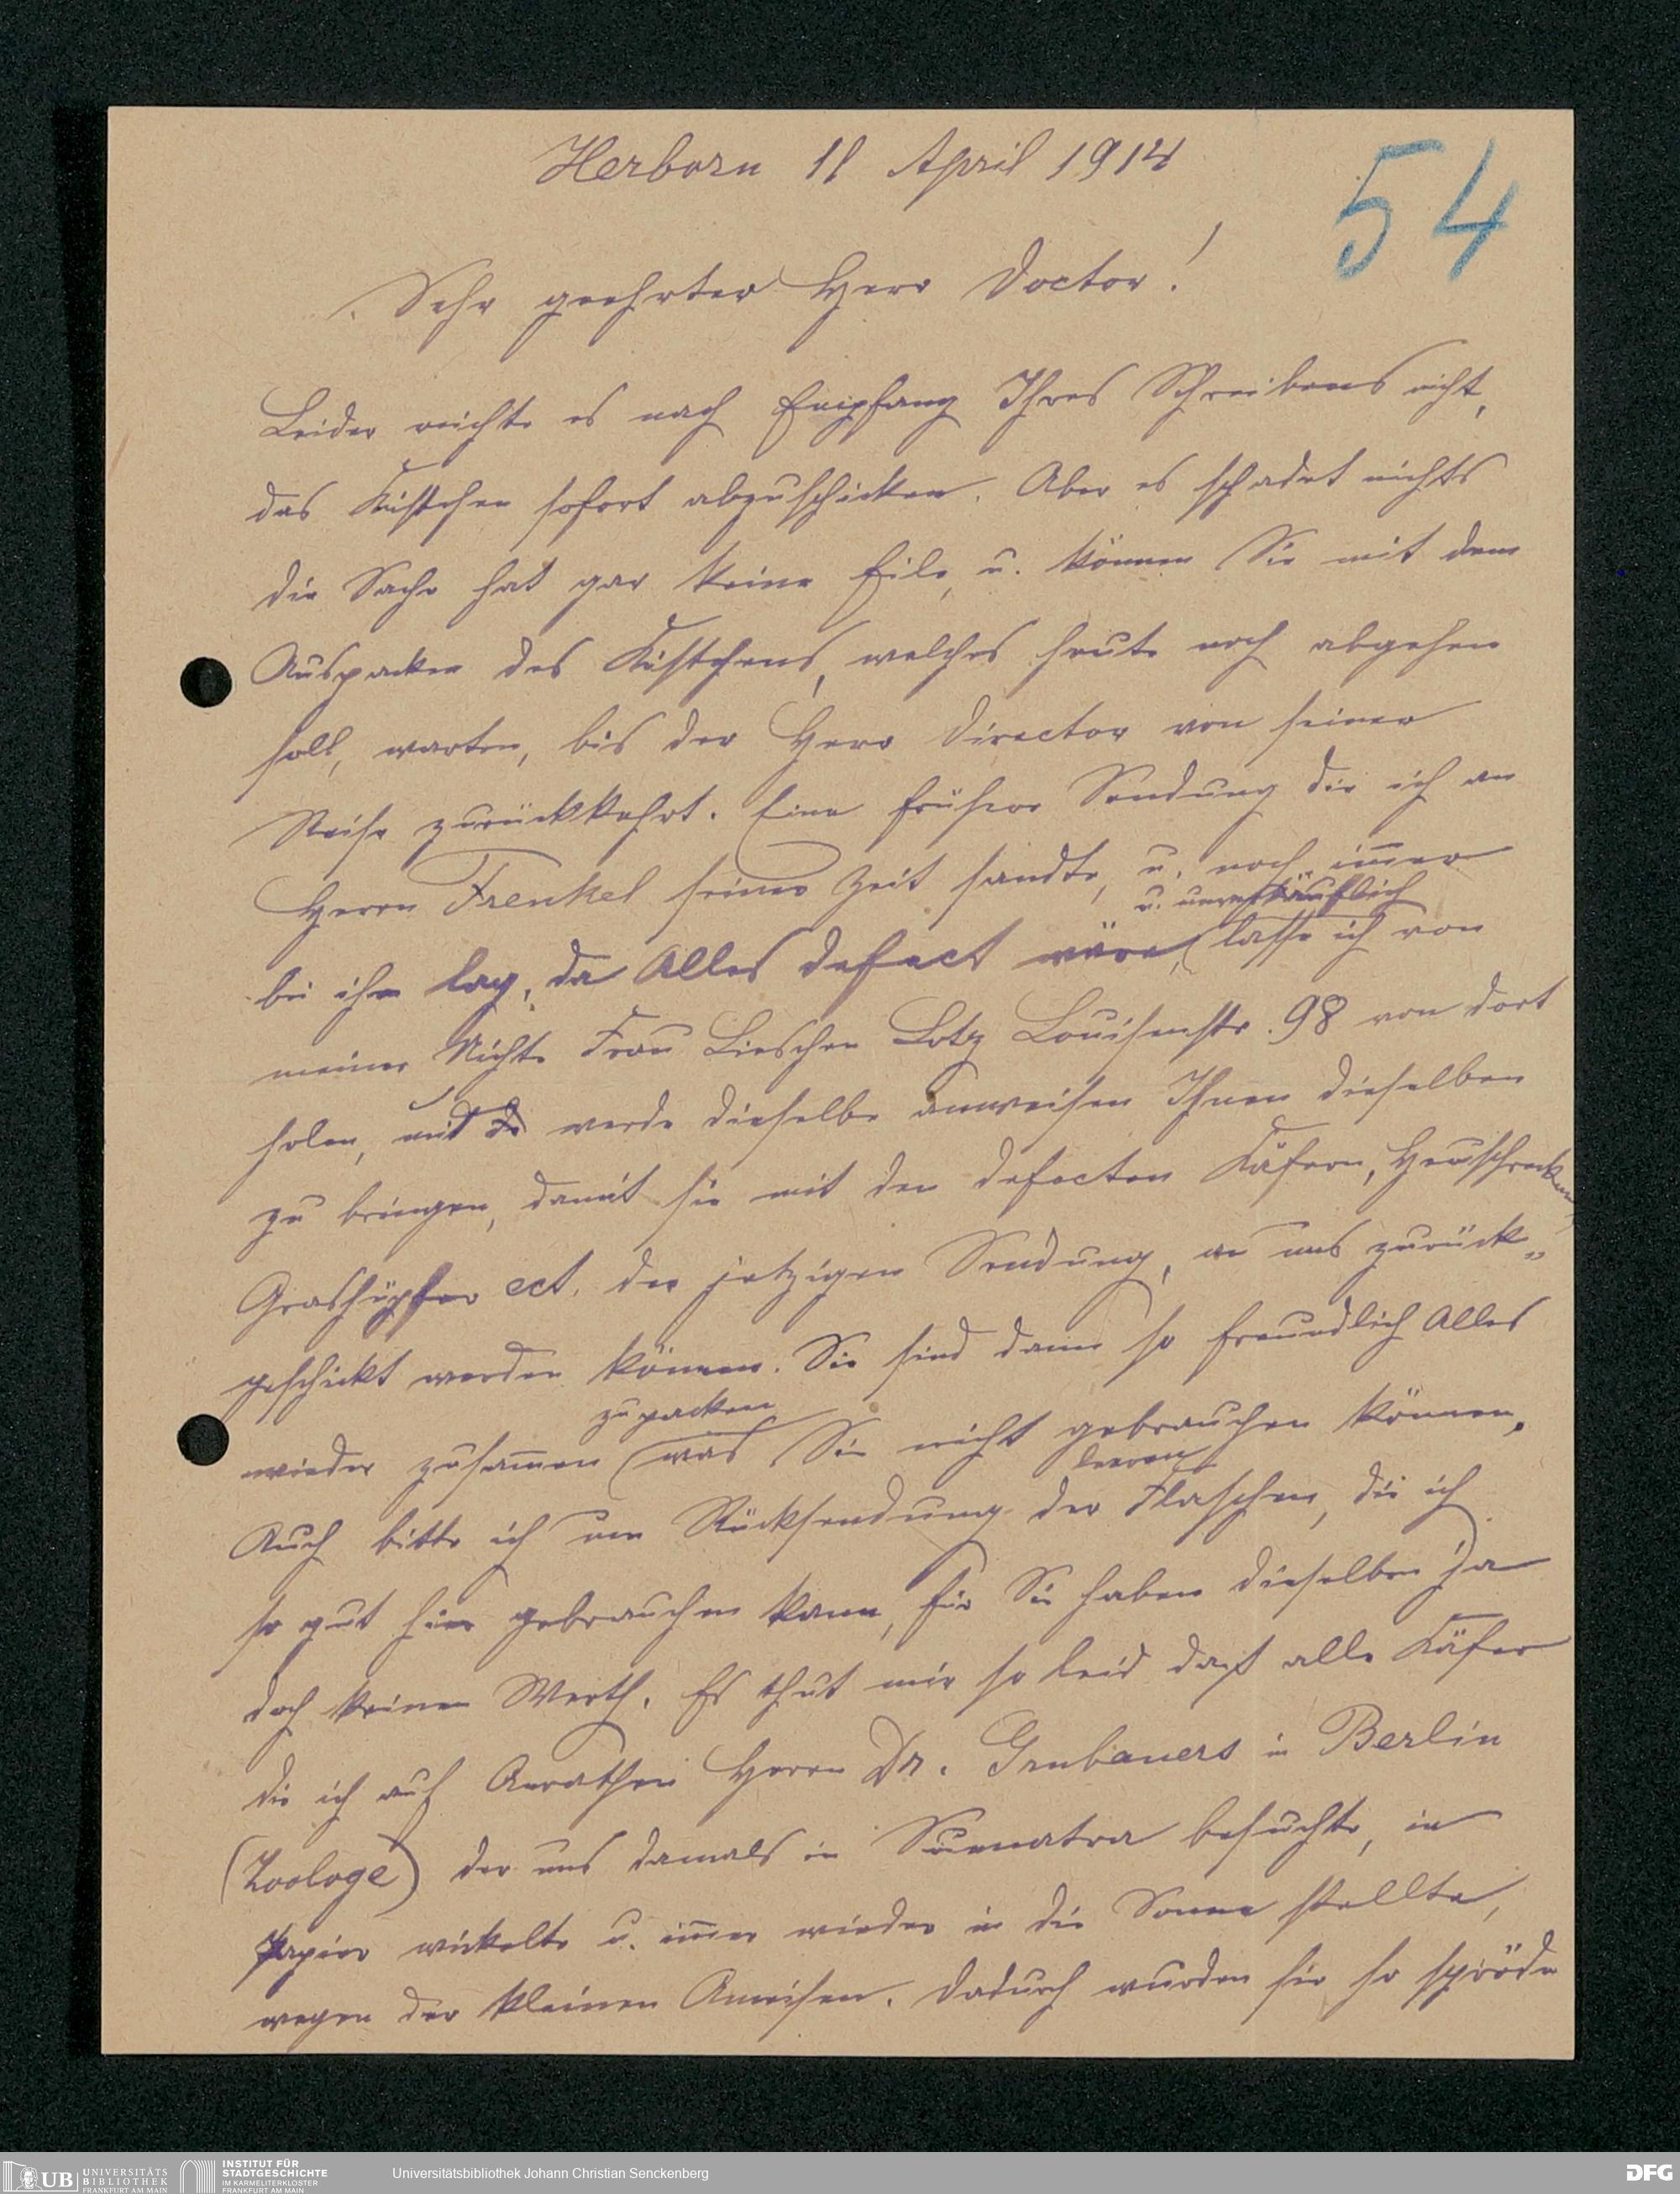 Herborn 11 April 1914
54
Sehr geehrter Herr Doctor!
Leider reichte es nach Empfang Ihres Schreibens nicht,
das Kistchen sofort abzuschicken. Aber es schadet nichts
die Sache hat gar keine Eile, u. können Sie mit dem
Auspacken des Kistchens, welches heute noch abgehen
soll, warten, bis der Herr Director von seiner
Reise zurückkehrt. Eine frühere Sendung die ich an
Herrn Frenkel seiner Zeit sandte, u. noch immer
u. unverkäuflich
bei ihm lag, da Alles defect wäre, lasse ich von
meiner Nichte Frau Lieschen Lotz Louisenstr. 98 von dort
holen, und werde dieselbe anweisen Ihnen dieselben
zu bringen, damit sie mit den defecten Käfern, Heuschrecken,
Grashüpfer ect. der jetzigen Sendung, an uns zurück-
geschickt werden können. Sie sind dann so freundlich Alles
zu packen
wieder zusammen was Sie nicht gebrauchen können.
leeren
Auch bitte ich um Rücksendung der Flaschen, die ich
so gut hier gebrauchen kann, für Sie haben dieselben ja
doch keinen Werth. Es thut mir so leid daß alle Käfer
die ich auf Anrathen Herrn Dr. Grubauers in Berlin
(Zoologe) der uns damals in Sumatra besuchte, in
Papier wickelte u. immer wieder in die Sonne stellte,
wegen der kleinen Ameisen. Dadurch wurden sie so spröde
UB UNIVERSITÄTS
BIBLIOTHEK
FRANKFURT AM MAIN
INSTITUT FÜR
STADTGESCHICHTE
IM KARMELITERKLOSTER
FRANKFURT AM MAIN
Universitätsbibliothek Johann Christian Senckenberg
DFG